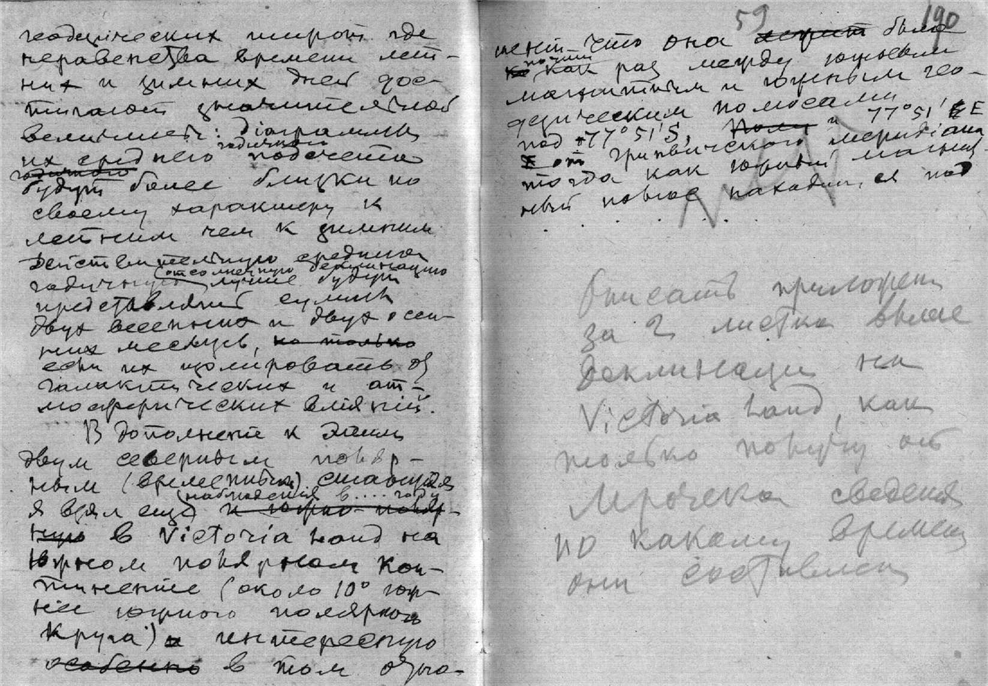 геодезических широт где
неравенства времени лет-
них и зимних дней дос-
тигают значительной
величины: Діаграммы
их среднего годичного подсчета
годичного
будут более близки по
своему характеру к
летним чем к зимним
Действительную среднюю
годичную (от солнечную деклинацию
лучше будут
представлять суммы
двух весенних и двух осен-
них месяцев, но только
если их изолировать от
галактических и ат-
мосферических влияний.
В дополнение к этим
двум северным поляр-
ным (временным) станциям
(наблюдения в .... году
я взял ещё и южно-поляр-
ную в Victoria Land на
Южном полярном кон-
тиненте (около 10° юж-
нее южного полярного
круга) а интересную
особенно в том отно-
59 190
шении что она была
почти
как раз между южным
магнитным и южным гео-
дезическим полюсами
под 77°51'S, и 77°51' E
от гринвичского меридиана
тогда как южный магнит-
ный полюс находился под
.......
Описать приложен
за 2 листка выше
деклинации на
Victoria Land, как
только получу от
Мрочека сведения
по какому времени
они составлены